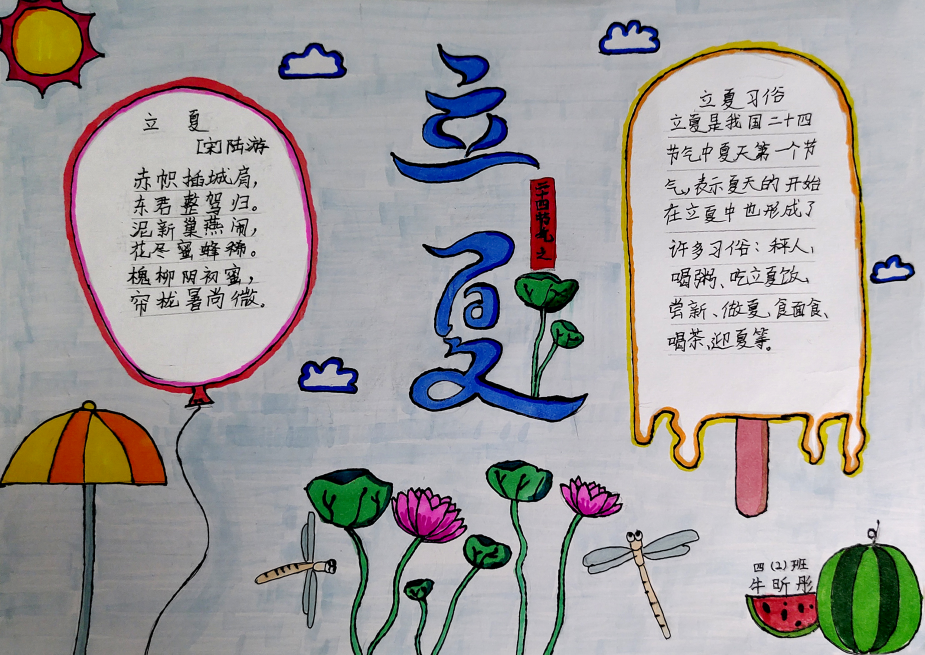 立夏
二十四节气之
立 夏
[宋]陆游
赤帜插城肩，
东君整驾归。
泥新巢燕闹，
花尽蜜蜂稀。
槐柳阴初蜜，
帘栊暑尚微。
立夏习俗
立夏是我国二十四
节气中夏天第一个节
气，表示夏天的开始
在立夏中也形成了
许多习俗：秤人、
喝粥、吃立夏饭、
尝新、做夏、食面食、
喝茶、迎夏等。
四（2）班
牛昕彤